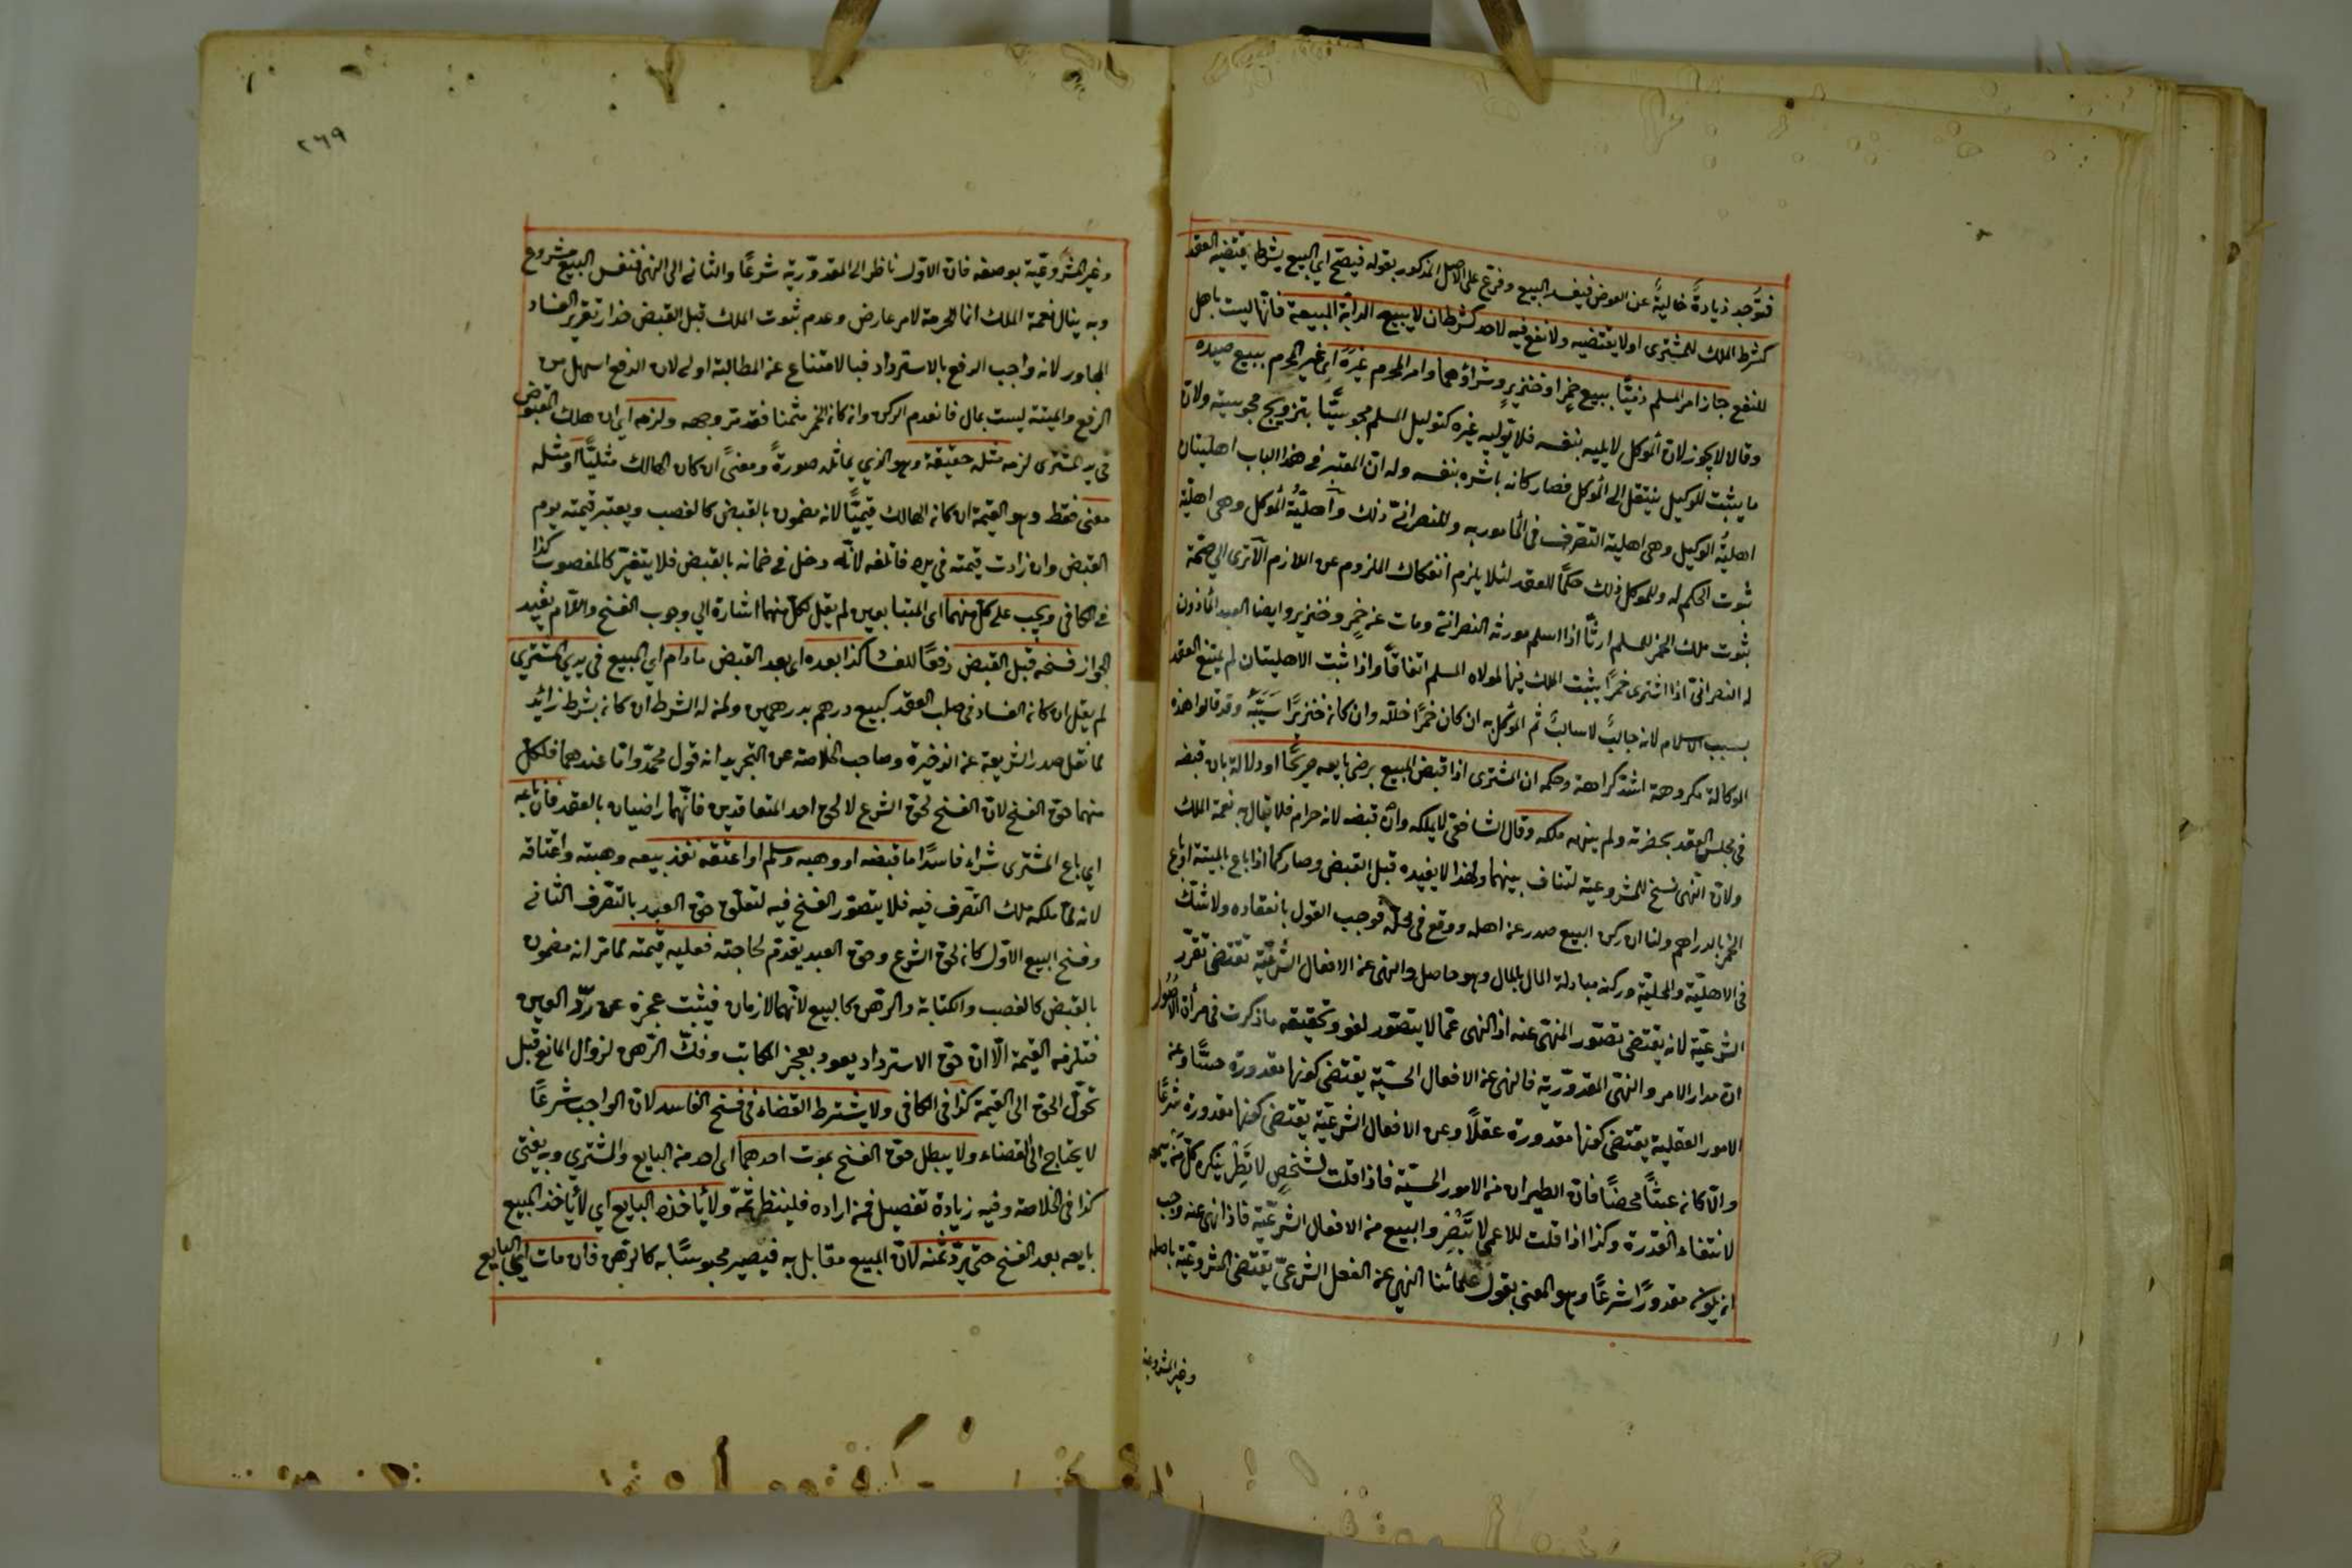 فتوجد زيادةً خاليةً عن العوض فيفسد البيع وفرّع على الاصل المذكور بقوله فيصحّ اي البيع بشرط يقتضيه العقد
كشرط الملك للمشترى او لا يقتضيه ولا نفع فيه لاحد كشرط ان لا يبيع الدابّة المبيعة فانّها ليست باهل
للنفع جاز امر المسلم ذميًّا ببيع خمرٍ او خنزيرٍ وشراؤهما وامر المحرم غيرَهُ اي غير المحرم ببيع صيده
وقالا لا يجوز لانّ الموكل لا يليه بنفسه فلا يولّيه غيره كتوكيل المسلم مجوسيًّا بتزويج مجوسية ولانّ
ما يثبت للوكيل ينتقل الى الموكل فصار كانه باشره بنفسه وله انّ المعتبر فى هذا الباب اهليتان
اهليةُ الوكيل وهى اهلية التصرّف فى المأمور به وللنصرانىّ ذلك واهليّةُ الموكل وهى اهليّة
ثبوت الحكم له وللموكل ذلك حكمًا للعقد لئلا يلزم انفكاك الملزوم عن اللازم الا ترى الي صحّة
ثبوت ملك الخمر للمسلم ارثًا اذا اسلم مورثه النصرانىّ ومات عن خمرٍ وخنزير وايضا العبد المأذون
له النصرانىّ اذا اشترى خمرًا يثبت الملك فيها لمولاه المسلم اتفاقًا واذا ثبت الاهليتان لم يمتنع العقد
بسبب الاسلام لانه جالبٌ لا سالبٌ ثم الموكَّل به ان كان خمرًا خلّله وان كان خنزيرًا سَيَّبَهُ وقد قالوا هذه
الوكالة مكروهة اشدّ كراهة وحكمه ان المشترى اذا قبض المبيع برضى بايعه صريحًا او دلالة بان قبضه
فى مجلس العقد بحضرته ولم ينهه ملكه وقال الشافعىّ لا يملكه وان قبضه لانه حرام فلا ينال به نعمة الملك
ولانّ النهى نسخ للمشروعية لتناف بينهما ولهذا لا يفيده قبل القبض وصار كما اذا باع بالميتة او باع
الخمر بالدراهم ولنا ان ركن البيع صدر عن اهله ووقع فى محلّه فوجب القول بانعقاده ولا شكّ
فى الاهليّة والمحليّة وركنه مبادلة المال بالمال وهو حاصل والنهى عن الافعال الشرعيّة تقتضى تقرّر
الشرعيّة لانه يقتضى تصوّر المنهىّ عنه اذ النهى عمّا لا يتصّور لغو وتحقيقه ما ذكرت فى مرأة الاصول
انّ مدار الامر والنهى المقدوريّة فالنهى عن الافعال الحسّيّة يقتضى كونها مقدورة حسًّا وعن
الامور العقلية يقتضى كونها مقدورة عقلًا وعن الافعال الشرعيّة يقتضى كونها مقدورة شرعًا
والّا كان عبثًا محضًا فانّ الطيران من الامور الحسيّة فاذا قلت لشخصٍ لا تَطِرْ ينكره كلّ من سمعه
لانتفاء القدرة وكذا اذا قلت للاعمى لا تبصِر والبيع من الافعال الشرعيّة فاذا نهى عنه وجب
ان يكون مقدورًا شرعًا وهو المعنى بقول علمائنا النهي عن الفعل الشرعيّ يقتضى المشروعيّة باصله
وغير المشروعية
٢٦٩
وغير المشروعيّة بوصفه فانّ الاوّل ناظر الى المقدوريّة شرعًا والثانى الى النهى فنفس البيع مشروع
وبه ينال نعمة الملك انما الحرمة لامر عارض وعدم ثبوت الملك قبل القبض حذار تقرير الفساد
المجاور لانه واجب الرفع بالاسترداد فبالامتناع عن المطالبة اولى لان الدفع اسهل من
الرفع والميتة ليست بمال فانعدم الركن وان كان الخمر مثمنا فقد مرّ وجهه ولزمه اي ان هلك المقبوض
فى يد المشترى لزمه مثله حقيقة وهو الذي يماثله صورةً ومعنىً ان كان الهالك مثليًّا او مثله
معنى فقط وهو القيمة ان كان الهالك قيميًّا لانه مضمون بالقبض كالغصب ويعتبر قيمته يوم
القبض وان زادت قيمته فى يده فاتلفه لانّه دخل فى ضمانه بالقبض فلا يتغيّر كالمغصوب كذا
فى الكافى ويجب على كلّ منهما اى المتبايعين لم يقل لكلّ منهما اشارة الي وجوب الفسخ واللام يفيد
الجواز فسخه قبل القبض رفعًا للفساد كذا بعده اى بعد القبض ما دام اي المبيع فى يدي المشترى
لم يقل ان كان الفساد فى صلب العقد كبيع درهم بدرهمين ولمن له الشرط ان كان بشرط زائد
لما نقل صدر الشريعة عن الذخيرة وصاحب الخلاصة عن التجريد انه قول محمّد وامّا عندهما فلكلّ
منهما حق الفسخ لانّ الفسخ لحق الشرع لا لحق احد المتعاقدين فانّهما راضيان بالعقد فان باعه
اي باع المشترى شراء فاسدًا ما قبضه او وهبه وسلم او اعتقه نفذ بيعه وهبته واعتاقه
لانه لمّا ملكه ملك التصرف فيه فلا يتصوّر الفسخ فيه لتعلّق حق العبد بالتصرف الثانى
وفسخ البيع الاوّل كان لحق الشرع وحق العبد يقدّم لحاجته فعليه قيمته لما مرّ انه مضمون
بالقبض كالغصب والكتابة والرهن كالبيع لانّهما لازمان فيثبت عجزه عن ردّ العين
فتلزمه القيمة الّا انّ حق الاسترداد يعود بعجز المكاتب وفكّ الرّهن لزوال المانع قبل
تحوّل الحق الى القيمة كذا فى الكافى ولا يشترط القضاء فى فسخ الفاسد لانّ الواجب شرعًا
لا يحتاج الى القضاء ولا يبطل حق الفسخ بموت احدهما اى احد من البايع والمشتري وبه يفتى
كذا فى الخلاصة وفيه زيادة تفصيل فمن اراده فلينظر ثمّة ولا يأخذه البايع اي لا يأخذ المبيع
بايعه بعد الفسخ حتى يردّ ثمنه لانّ المبيع مقابل به فيصير محبوسًا به كالرهن فان مات اي البايع